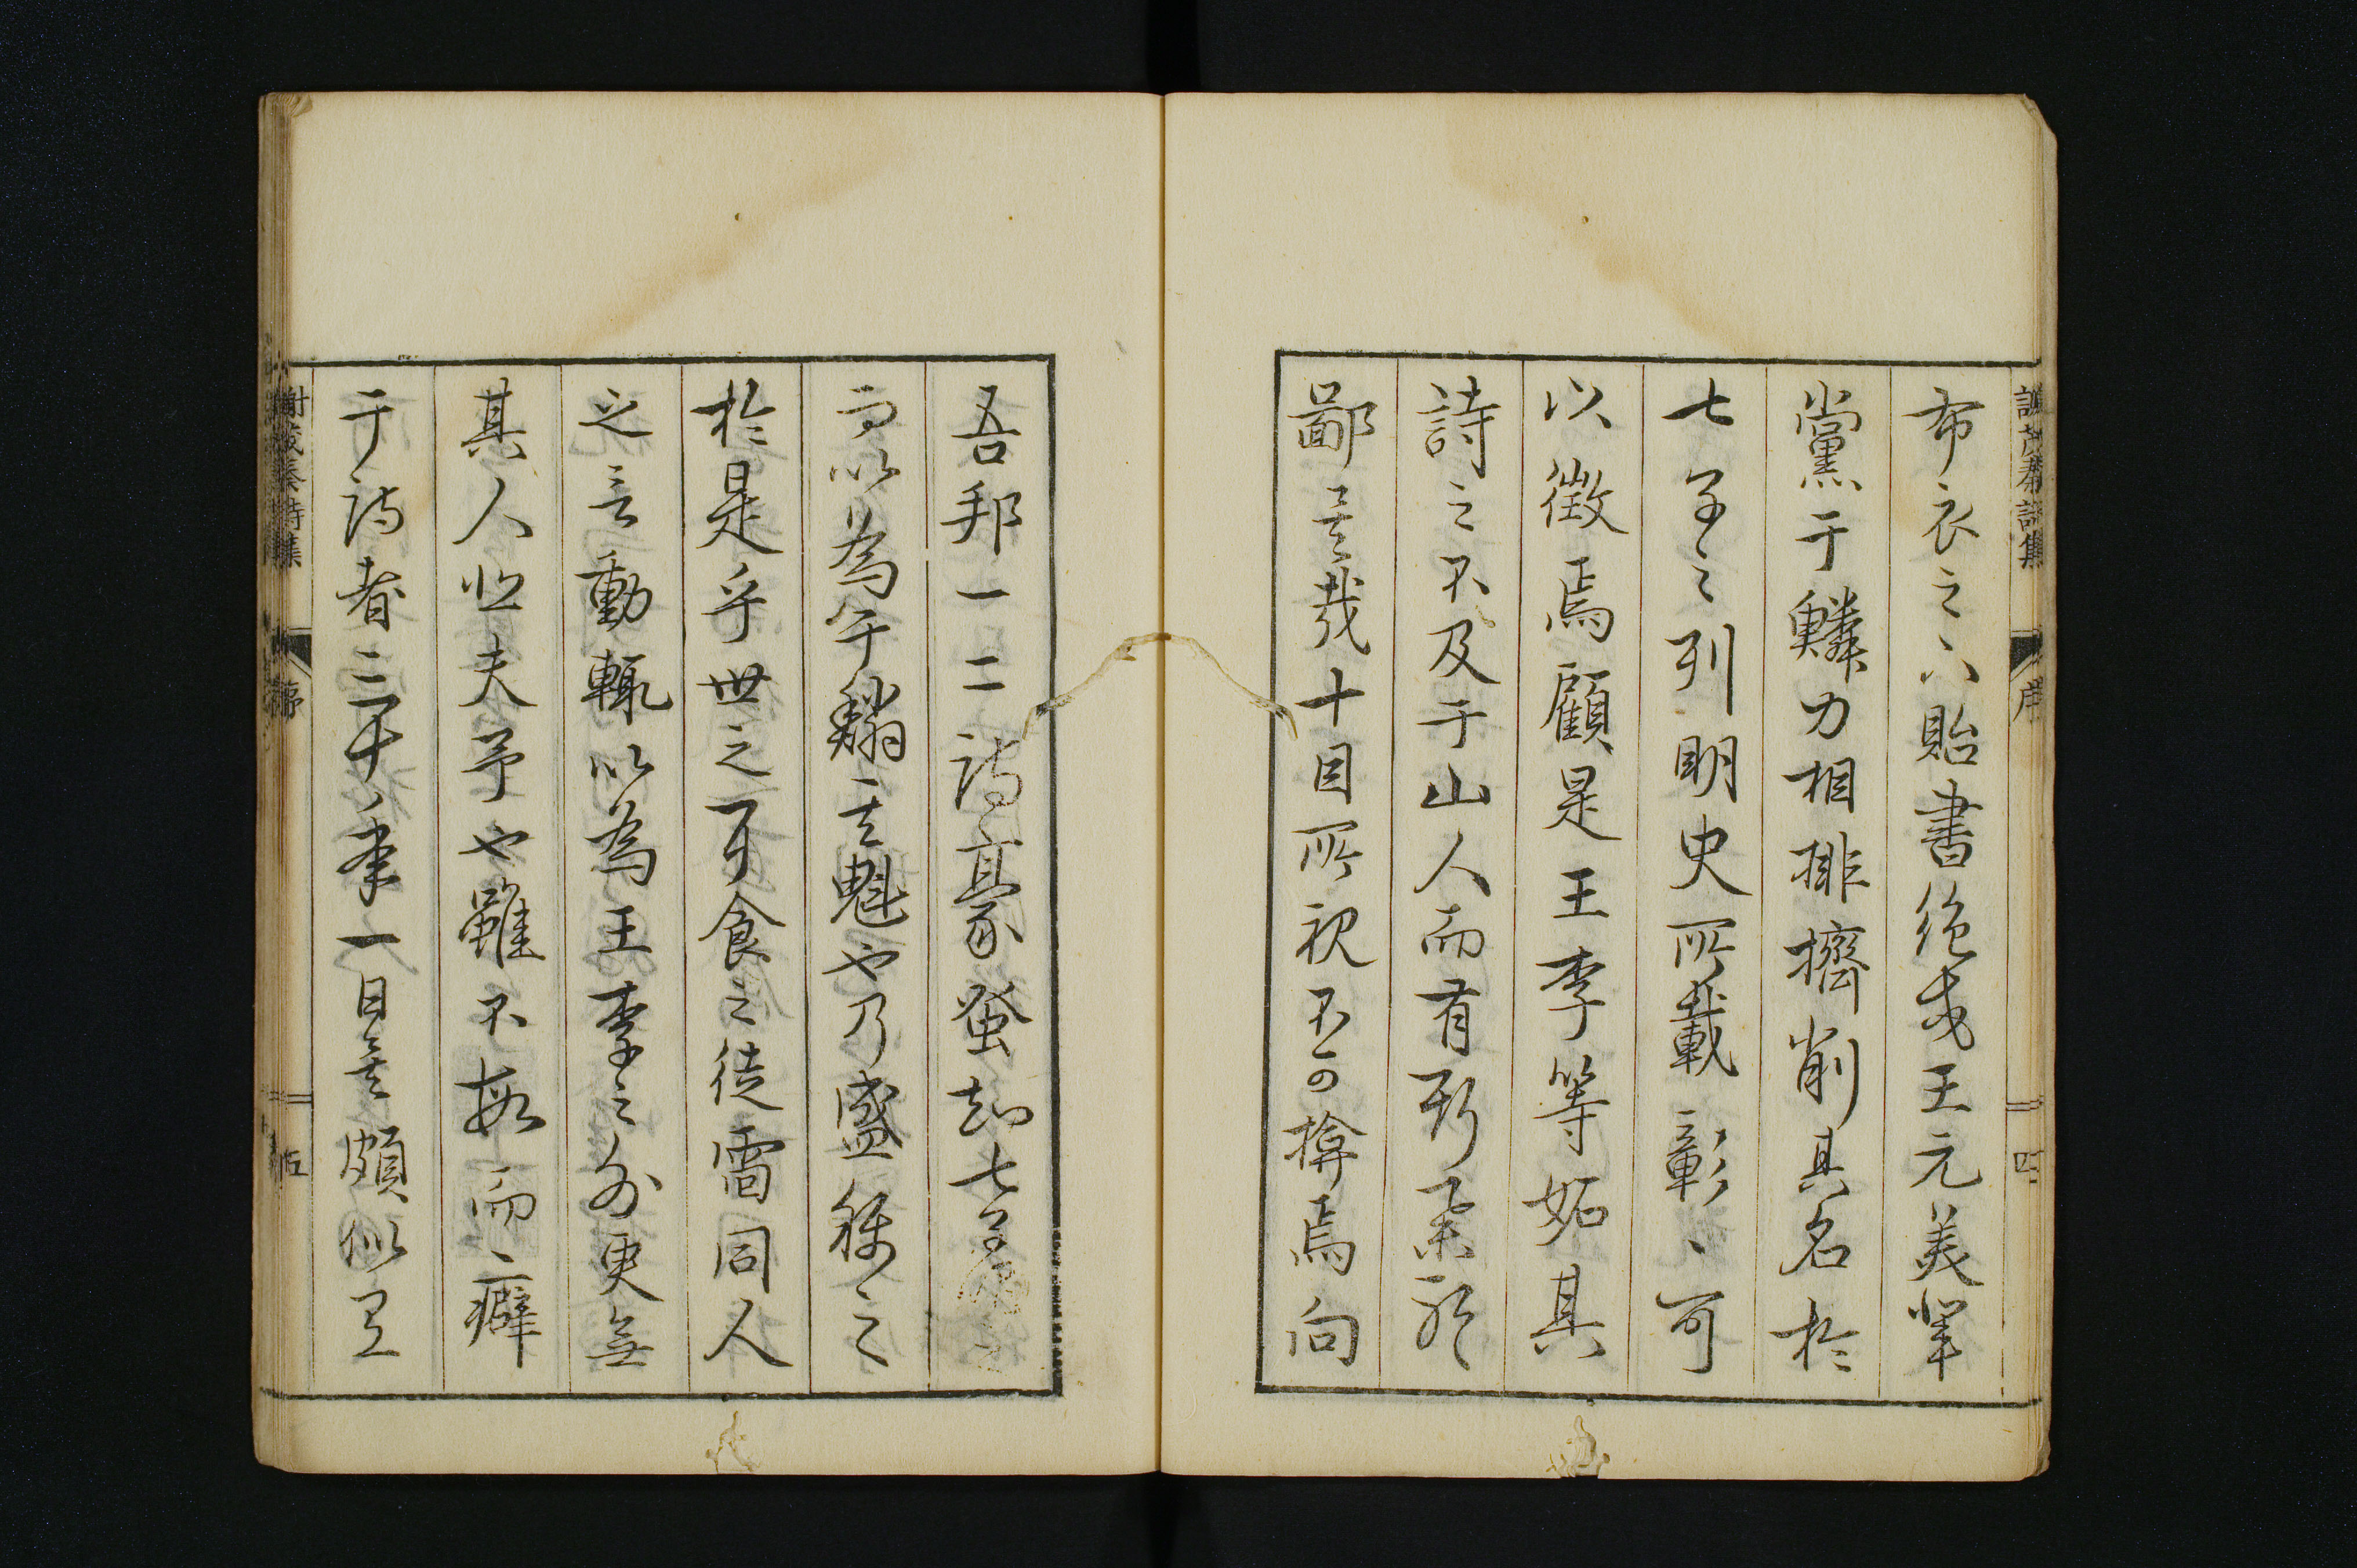 謝茂秦詩集 序 四
布衣之貽書絶交王元美輩
黨于鱗力相排擠削其名於
七子之列明史所載彰〻可
以徴焉顧是王李等妬其
詩之不及于山人而有耶
鄙哉十目所視不可揜焉向
吾邦一二詩豪起七子之
以為于鱗其魁也乃盛稱之
於是乎世之耳食之徒雷同人
之言動輒以為王李之外更無
其人悲夫予也雖不敏而癖
于詩者三十年一日矣頗似
謝茂秦詩集 序 五